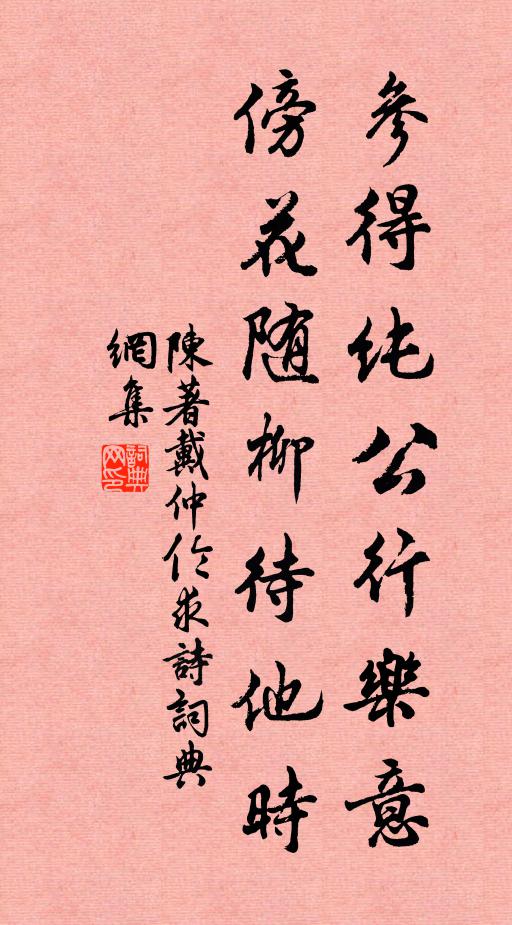 參得純公行樂意
傍花随柳待他時
陳著戴仲伦求詩詞典
網集
詞典
网印